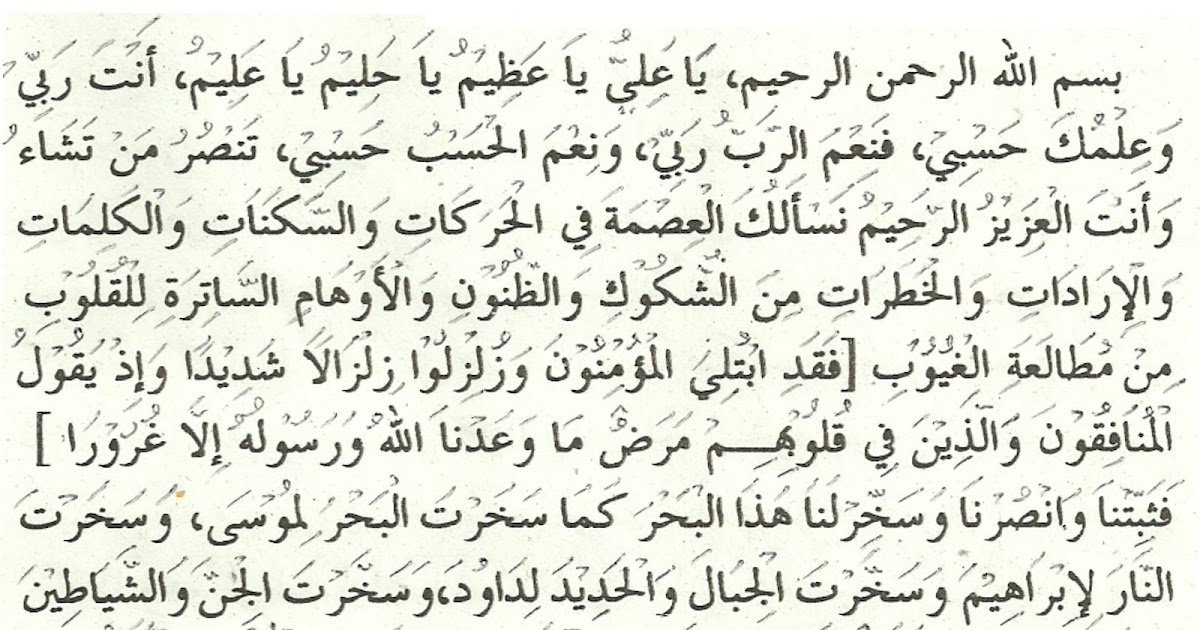 بسم الله الرحمن الرحيم، يَا عَلِيُّ يَا عَظِيْمُ يَا حَلِيْمُ يَا عَلِيْمُ، أَنْتَ رَبِّيْ
وَعِلْمُكَ حَسْبِيْ، فَنِعْمَ الرَّبُّ رَبِّيْ، وَنِعْمَ الْحَسْبُ حَسْبِيْ، تَنْصُرُ مَنْ تَشَاءُ
وَأَنْتَ الْعَزِيْزُ الرَّحِيْمُ نَسْأَلُكَ الْعِصْمَةَ فِي الْحَرَكَاتِ وَالسَّكَنَاتِ وَالْكَلِمَاتِ
وَالْإِرَادَاتِ وَالْخَطَرَاتِ مِنَ الشُّكُوْكِ وَالظُّنُوْنِ وَالْأَوْهَامِ السَّاتِرَةِ لِلْقُلُوْبِ
مِنْ مُطَالَعَةِ الْغُيُوْبِ [فَقَدِ ابْتُلِيَ الْمُؤْمِنُوْنَ وَزُلْزِلُوْا زِلْزَالًا شَدِيْدًا وَإِذْ يَقُوْلُ
الْمُنَافِقُوْنَ وَالَّذِيْنَ فِي قُلُوْبِهِمْ مَرَضٌ مَا وَعَدَنَا اللهُ وَرَسُوْلُهُ إِلَّا غُرُوْرًا ]
فَثَبِّتْنَا وَانْصُرْنَا وَسَخِّرْلَنَا هَذَا الْبَحْرَ كَمَا سَخَرْتَ الْبَحْرَ لِمُوْسَى، وَسَخَرْتَ
النَّارَ لِإِبْرَاهِيْمَ وَسَخَّرْتَ الْجِبَالَ وَالْحَدِيْدَ لِدَاوُدَ،وَسَخَّرْتَ الْجِنَّ وَالشَّيَاطِيْنَ